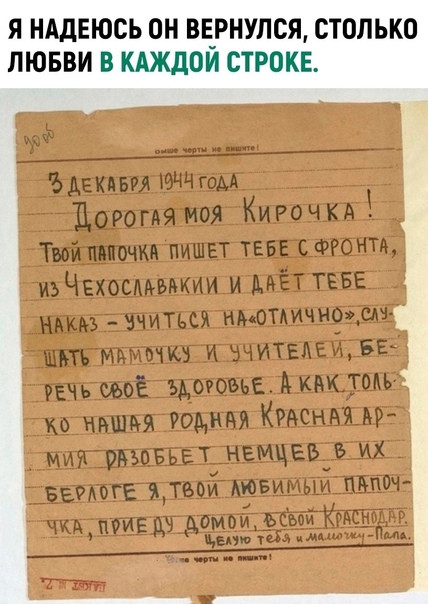 Я НАДЕЮСЬ ОН ВЕРНУЛСЯ, СТОЛЬКО
ЛЮБВИ В КАЖДОЙ СТРОКЕ.
выше черты не пишите!
3 ДЕКАБРЯ 1944 ГОДА
ДОРОГАЯ МОЯ КИРОЧКА!
ТВОЙ ПАПОЧКА ПИШЕТ ТЕБЕ С ФРОНТА,
ИЗ ЧЕХОСЛАВАКИИ И ДАЁТ ТЕБЕ
НАКАЗ – УЧИТЬСЯ НА «ОТЛИЧНО», СЛУ-
ШАТЬ МАМОЧКУ И УЧИТЕЛЕЙ, БЕ-
РЕЧЬ СВОЁ ЗДОРОВЬЕ. А КАК ТОЛЬ-
КО НАШАЯ РОДНАЯ КРАСНАЯ АР-
МИЯ РАЗОБЬЕТ НЕМЦЕВ В ИХ
БЕРЛОГЕ Я, ТВОЙ ЛЮБИМЫЙ ПАПОЧ-
ЧКА, ПРИЕДУ ДОМОЙ, В СВОЙ КРАСНОДАР.
ЦЕЛУЮ тебя и мамочку – Папа.
черты не пишите!